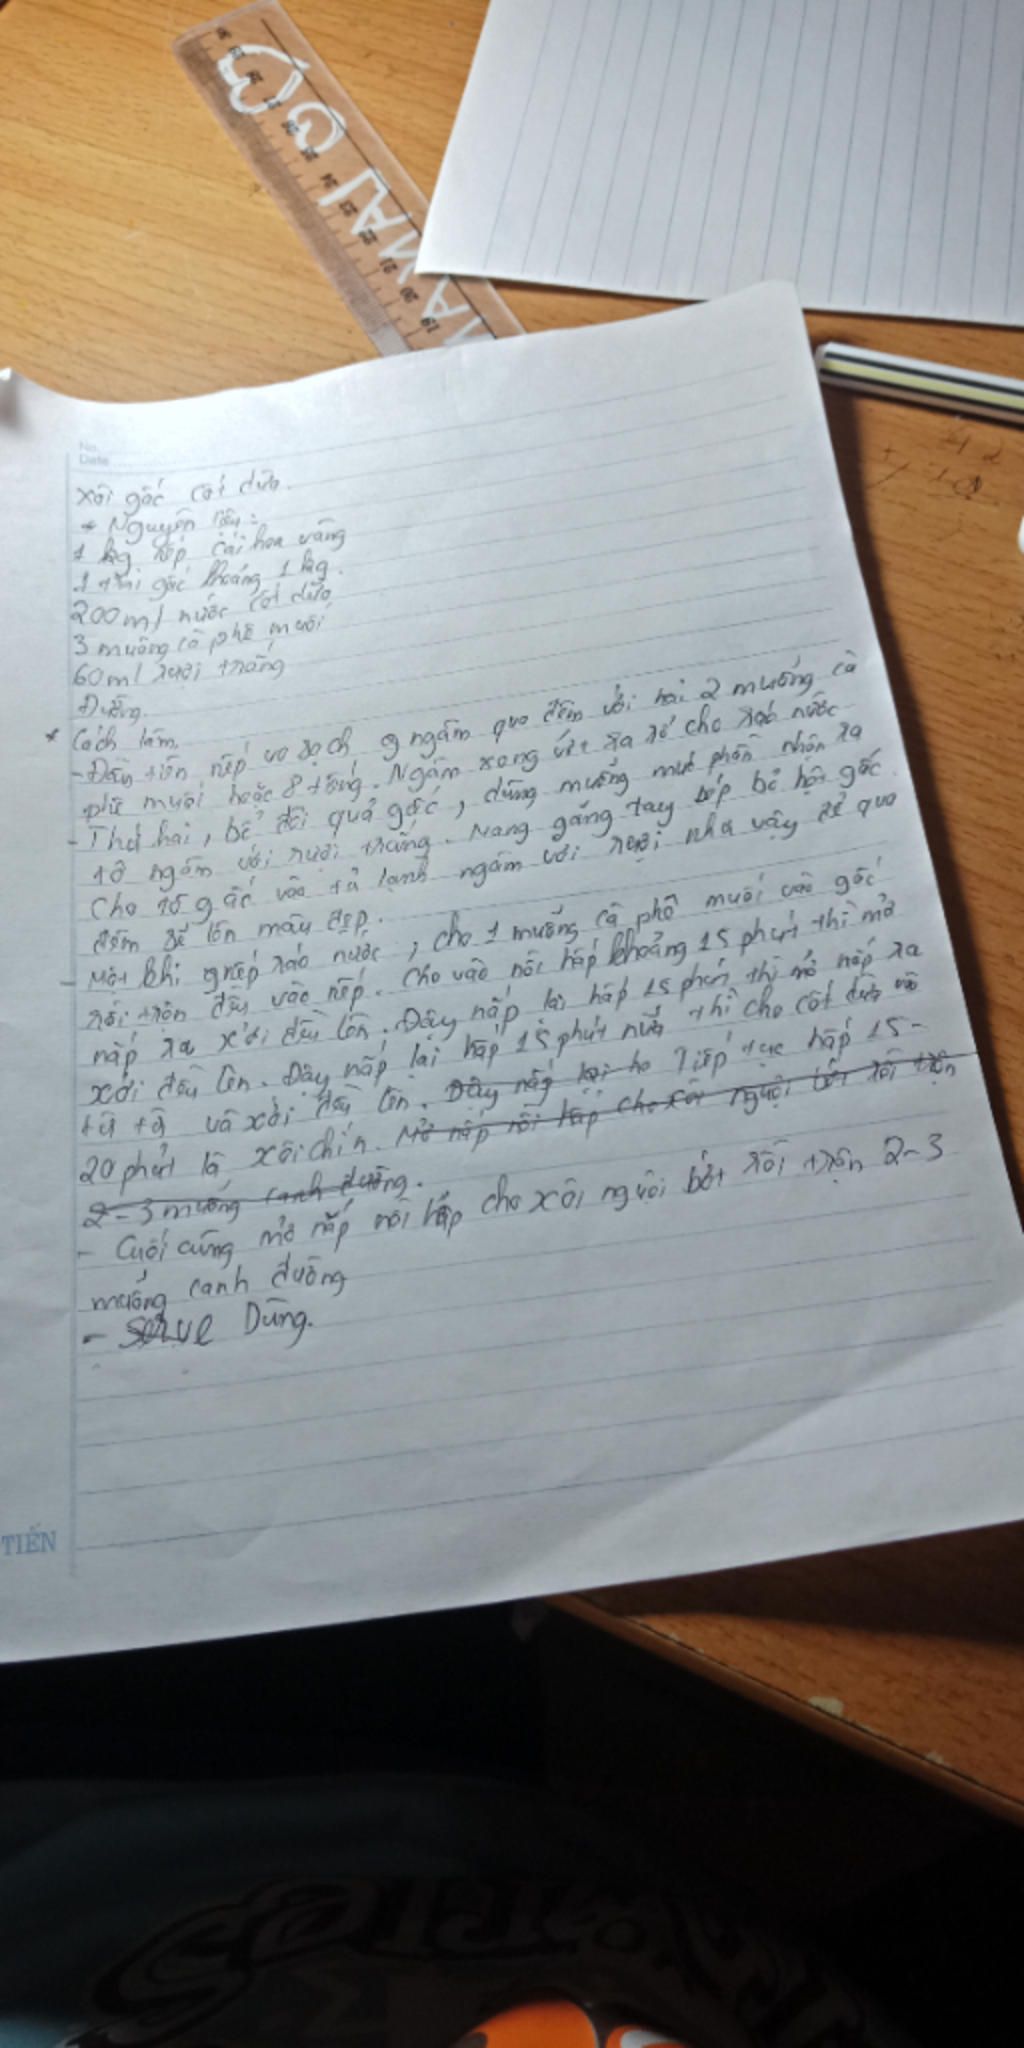 No.
Date
Xôi gấc cốt dừa.
* Nguyên liệu:
1 kg nếp cái hoa vàng
1 trái gấc khoảng 1 kg.
200ml nước cốt dừa
3 muỗng cà phê muối
60ml rượi trắng
Đường.
* Cách làm.
- Đầu tiên nếp vo sạch ngâm qua đêm với 2 muỗng cà
phê muối hoặc 8 tiếng. Ngâm xong vớt ra rổ cho ráo nước
- Thứ hai, bẻ đôi quả gấc, dùng muỗng múc phần nhân ra
tô ngâm với rượi trắng. Mang găng tay bóp bỏ hột gấc.
Cho tô gấc vào tủ lạnh ngâm với rượi như vậy để qua
đêm sẽ lên màu đẹp.
- Một khi nếp ráo nước, cho 1 muỗng cà phê muối vào gấc
rồi trộn đều vào nếp. Cho vào nồi hấp khoảng 15 phút thì mở
nắp ra xới đều lên. Đậy nắp lại hấp 15 phút thì mở nắp ra
xới đều lên. Đậy nắp lại hấp 15 phút nữa thì cho cốt dừa vào
từ từ và xới đều lên. Đậy nắp lại Tiếp tục hấp 15-
20 phút là xôi chín. Mở nắp nồi hấp cho xôi nguội bớt rồi trộn
2-3 muỗng canh đường.
- Cuối cùng mở nắp nồi hấp cho xôi nguội bớt rồi trộn 2-3
muỗng canh đường
- Serve Dùng.
TIẾN